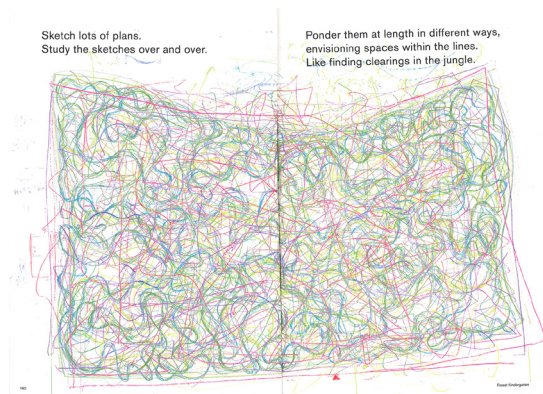 Sketch lots of plans.
Study the sketches over and over.
Ponder them at length in different ways,
envisioning spaces within the lines.
Like finding clearings in the jungle.
Forest Kindergarten